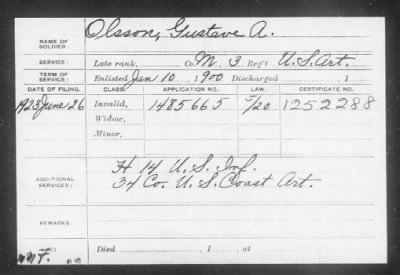 NAME OF SOLDIER: Olsson, Gustave A.
SERVICE: Late rank, Co. M, 3 Reg't U.S. Art.
TERM OF SERVICE: Enlisted Jan 10, 1900 Discharged , 1
DATE OF FILING. CLASS. APPLICATION NO. LAW. CERTIFICATE NO.
1923 June 26 Invalid, 1485665 5/20 1252288
Widow,
Minor,
ADDITIONAL SERVICES: H 14 U.S. Inf.
34 Co. U.S. Coast Art.
REMARKS:
Died , 1 , at